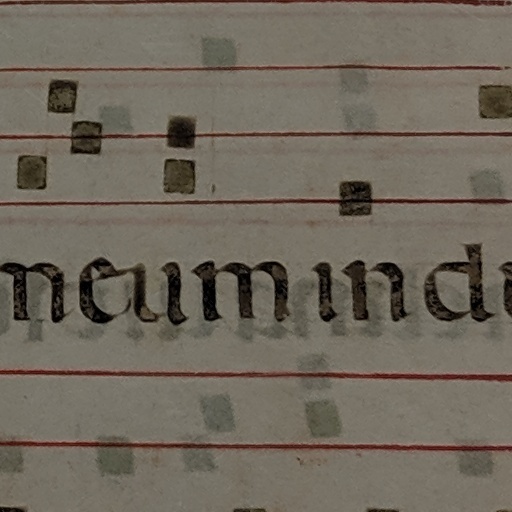 meum in du